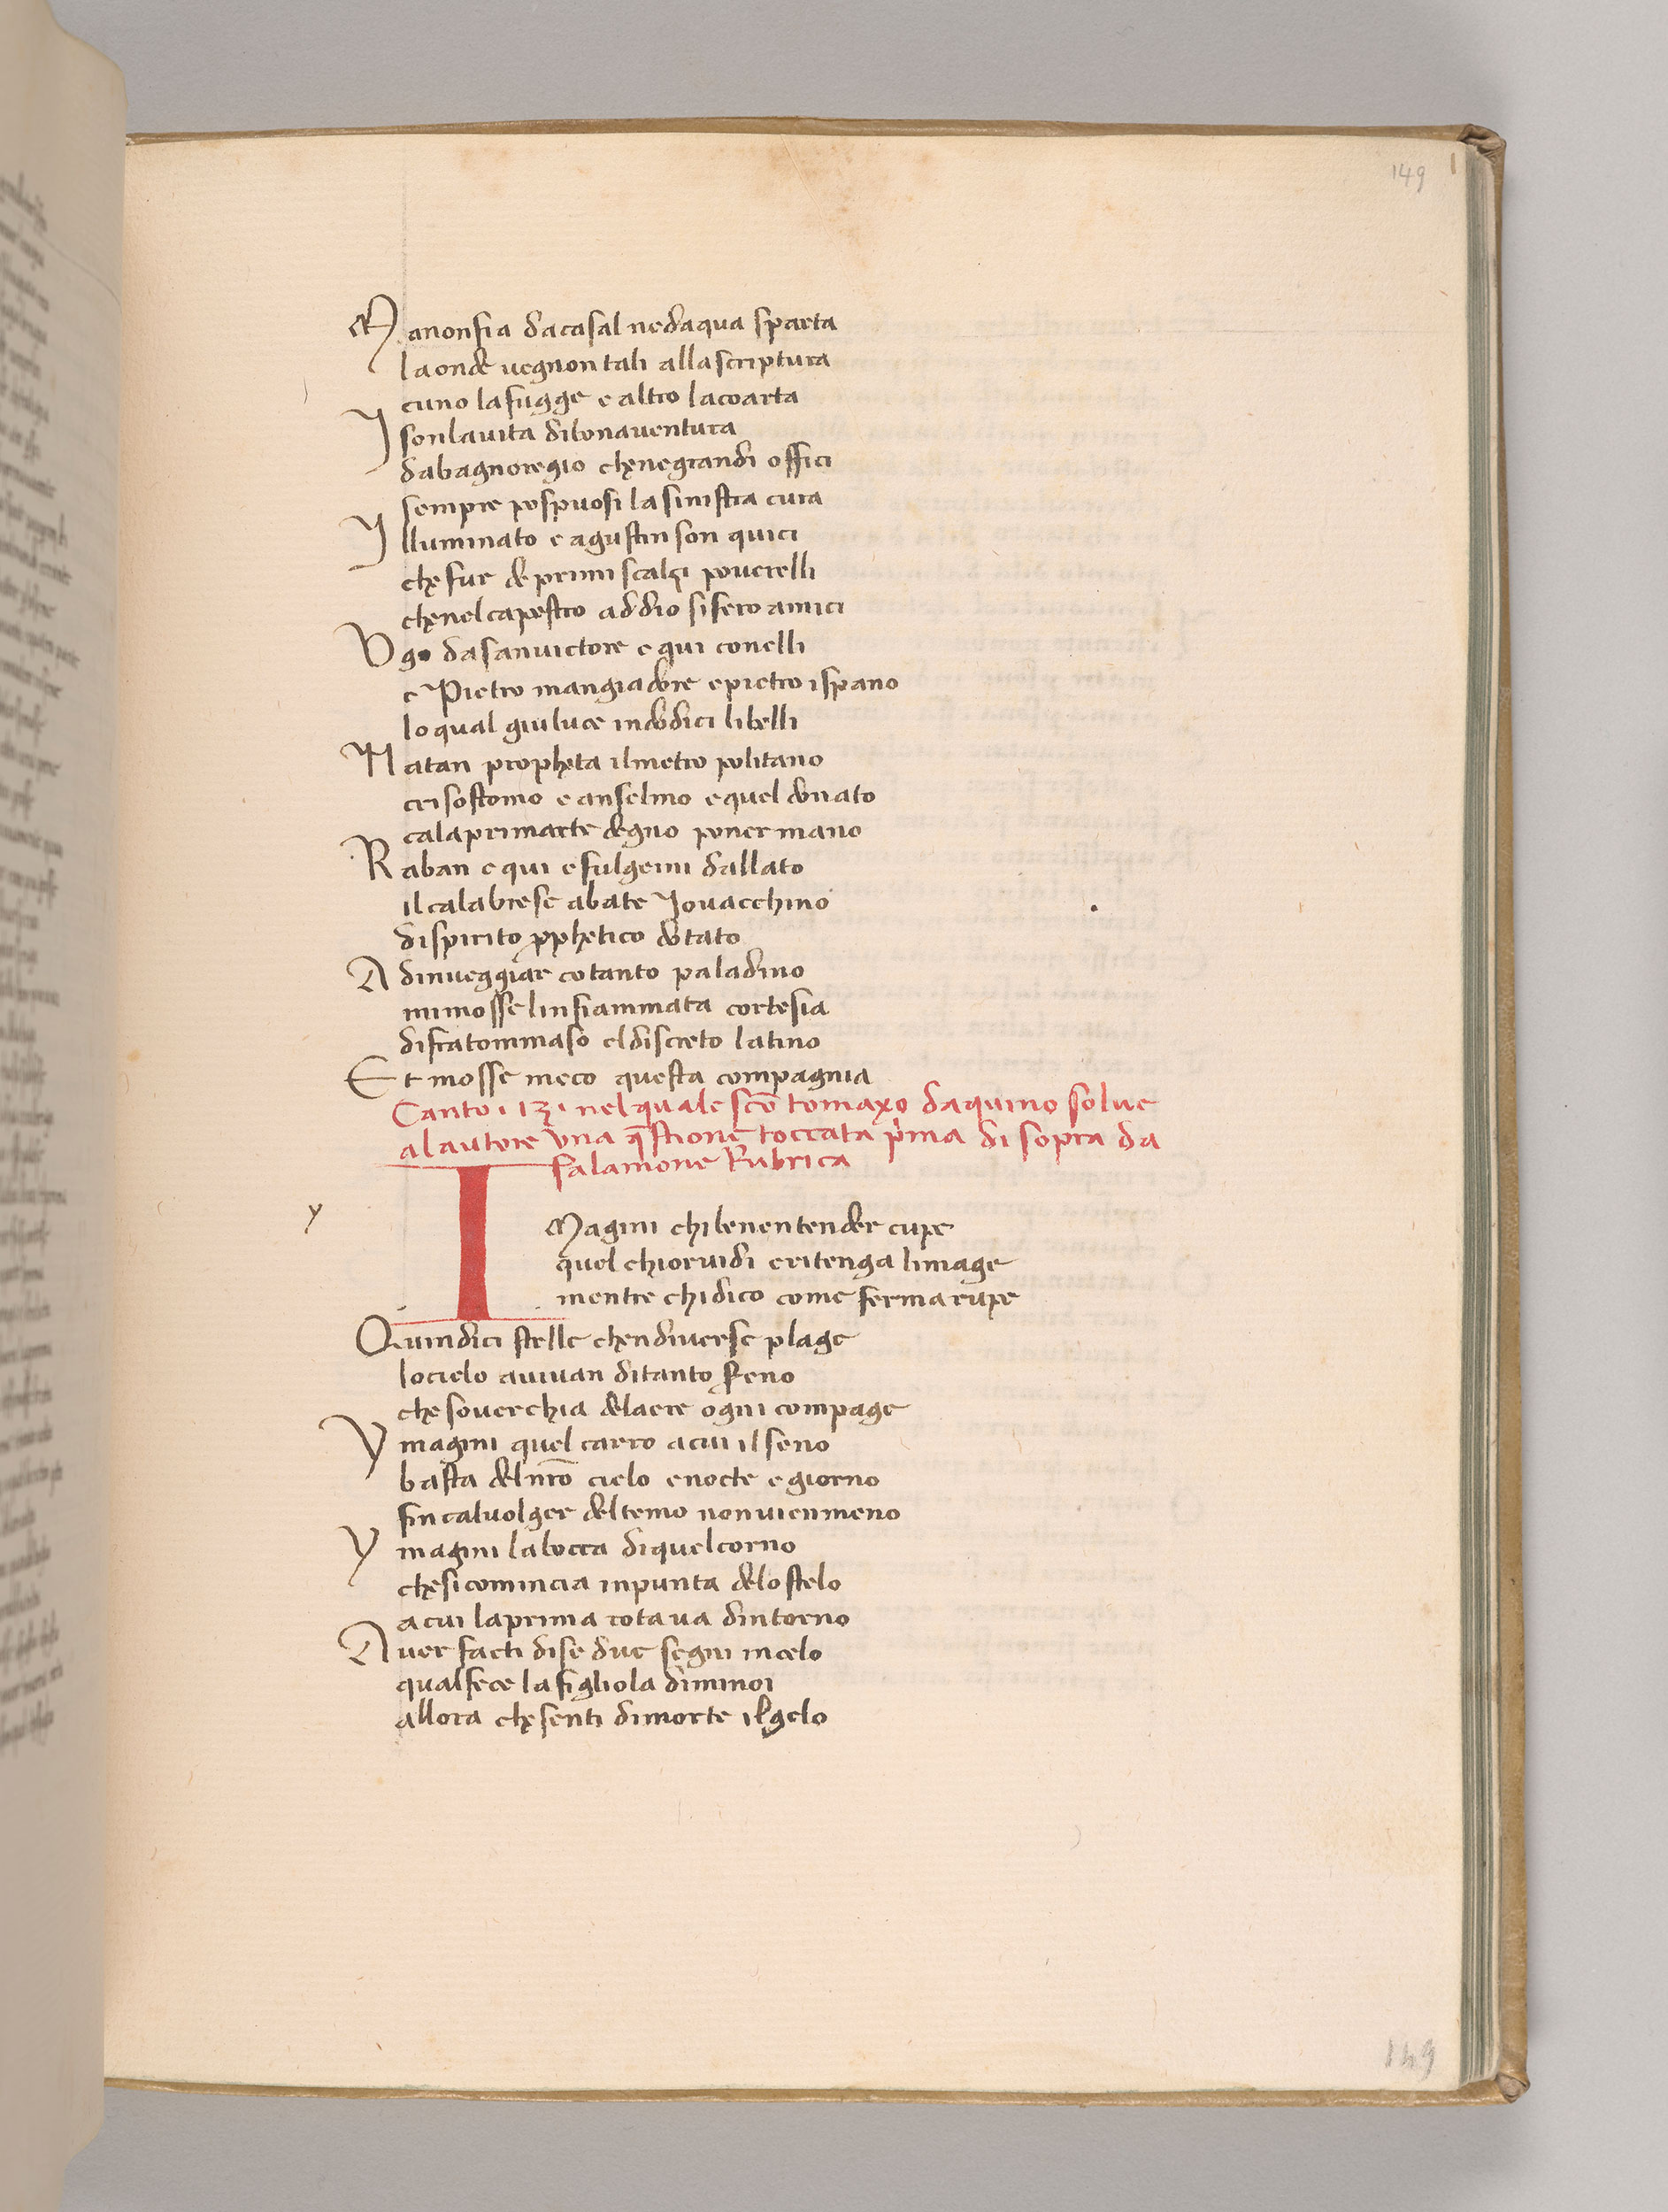 149
Ma non sia da casal ne daqua sparta
la onde vegnon tali alla scriptura
cuno la fugge e altro la coarta
I son la vita di bonaventura
da bagnoregio che ne grandi offici
sempre pospuosi la sinistra cura
Illuminato e agustin son quici
che fur de primi scalzi poverelli
che nel capestro addio si fero amici
Vgo da sanvictore e qui conelli
e Pietro mangiadore e pietro ispano
lo qual giu luce in dodici libelli
Natan propheta il metropolitano
crisostomo e anselmo e quel donato
cala primarte degno poner mano
Raban e qui e fulgemi dallato
il calabrese abate Jovacchino
di spirito pphetico dotato
Adinveggiar cotanto paladino
mi mosse linfiammata cortesia
di fra tommaso el discreto latino
Et mosse meco questa compagnia
Canto .13. nel quale sco tomaxo daquino solve
al autore una qstione toccata pma di sopra da
salamone Rubrica
y
I Magini chi bene ntender cupe
quel chior vidi e ritenga limage
mentre chi dico come ferma rupe
Quindici stelle che ndiverse plage
lo cielo avivan di tanto sereno
che soverchia de laere ogni compage
Ymagini quel carro a cui il seno
basta del nro cielo e nocte e giorno
sin cal volger del temo non vien meno
Ymagini la bocca di quel corno
che si comincia in punta de lo stelo
a cui la prima rota va dintorno
Aver facti di se due segni in celo
qual fece la figliola di minoi
allora che senti di morte il gelo
149